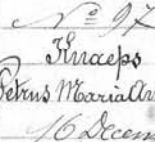 Nº 97
Knaeps
Petrus Maria An
16 Decem